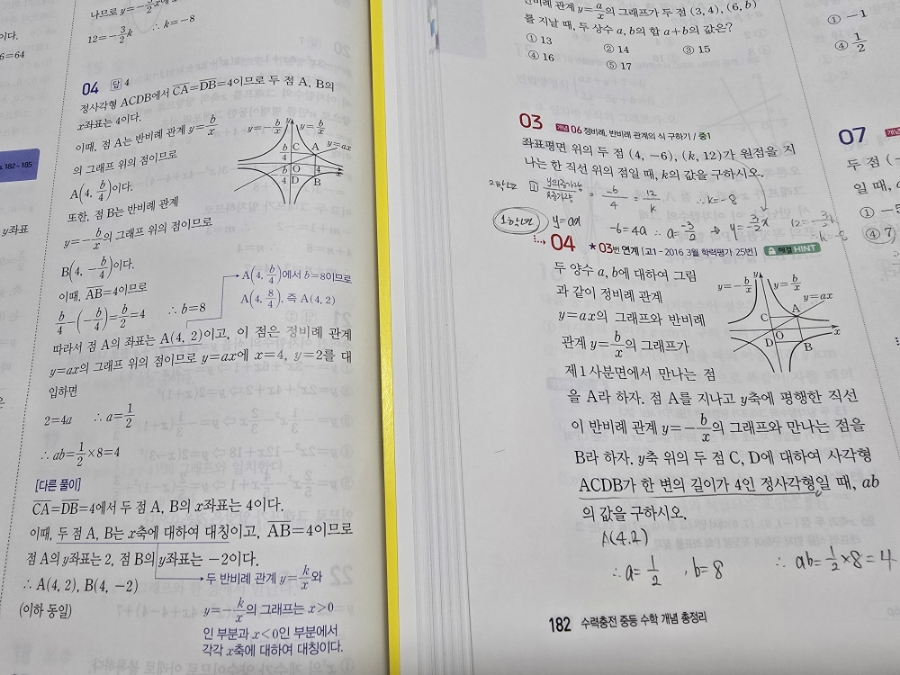 나므로 y=-3/2x에
12=-3/2k ∴ k=-8
이다.
6=64
04 답 4
정사각형 ACDB에서 CA=DB=4이므로 두 점 A, B의
x좌표는 4이다.
이때, 점 A는 반비례 관계 y=b/x
의 그래프 위의 점이므로
A(4, b/4)이다.
또한, 점 B는 반비례 관계
y=-b/x의 그래프 위의 점이므로
B(4, -b/4)이다.
이때, AB=4이므로
b/4-(-b/4)=b/2=4 ∴ b=8
A(4, b/4)에서 b=8이므로
A(4, 8/4), 즉 A(4, 2)
따라서 점 A의 좌표는 A(4, 2)이고, 이 점은 정비례 관계
y=ax의 그래프 위의 점이므로 y=ax에 x=4, y=2를 대
입하면
2=4a ∴ a=1/2
∴ ab=1/2×8=4
[다른 풀이]
CA=DB=4에서 두 점 A, B의 x좌표는 4이다.
이때, 두 점 A, B는 x축에 대하여 대칭이고, AB=4이므로
점 A의 y좌표는 2, 점 B의 y좌표는 -2이다.
∴ A(4, 2), B(4, -2)
(이하 동일)
두 반비례 관계 y=k/x와
y=-k/x의 그래프는 x>0
인 부분과 x<0인 부분에서
각각 x축에 대하여 대칭이다.
y=-b/x
y=b/x
y=ax
y
C
A
b/4
O
4
x
b/4
D
B
182~185
y좌표
반비례 관계 y=a/x의 그래프가 두 점 (3, 4), (6, b)
를 지날 때, 두 상수 a, b의 합 a+b의 값은?
① 13 ② 14 ③ 15
④ 16 ⑤ 17
03 개념 06 정비례, 반비례 관계의 식 구하기 / 중1
좌표평면 위의 두 점 (4, -6), (k, 12)가 원점을 지
나는 한 직선 위의 점일 때, k의 값을 구하시오.
-6/4 = 12/k ∴ k=-8
y=ax -6=4a ∴ a=-3/2 → y=-3/2x
04 ★03번 연계 [고1-2016 3월 학력평가 25번] HINT
두 양수 a, b에 대하여 그림
과 같이 정비례 관계
y=ax의 그래프와 반비례
관계 y=b/x의 그래프가
제1사분면에서 만나는 점
을 A라 하자. 점 A를 지나고 y축에 평행한 직선
이 반비례 관계 y=-b/x의 그래프와 만나는 점을
B라 하자. y축 위의 두 점 C, D에 대하여 사각형
ACDB가 한 변의 길이가 4인 정사각형일 때, ab
의 값을 구하시오.
y=-b/x
y
y=b/x
y=ax
C
A
O
x
D
B
A(4.2)
∴ a=1/2 , b=8 ∴ ab=1/2×8=4
182 수력충전 중등 수학 개념 총정리
① -1
④ 1/2
07
두 점 (-
일 때, a
① -5
④ 7